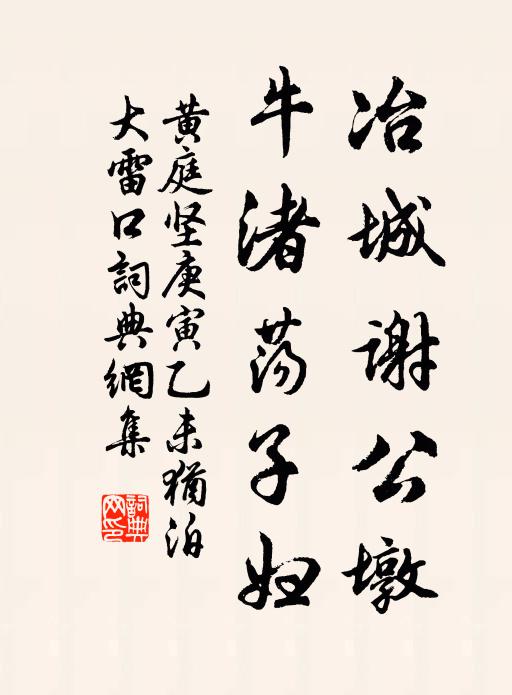 冶城谢公墩
牛渚荡子妇
黄庭坚庚寅乙未犹泊
大雷口詞典網集
詞典
网印